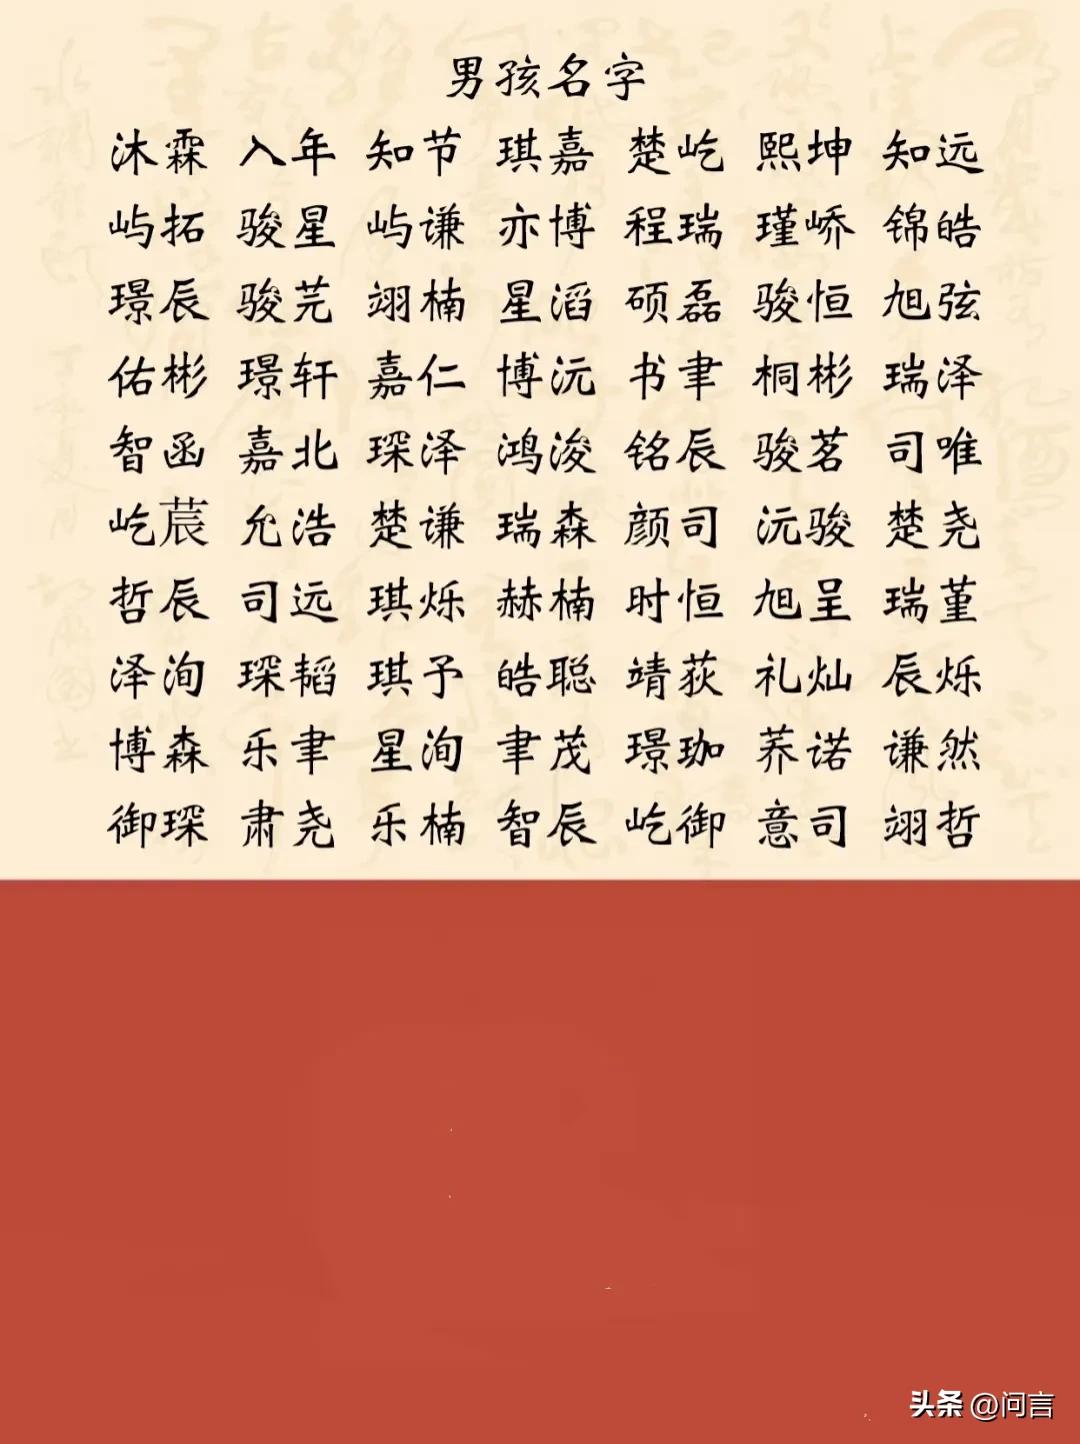 男孩名字
沐霖 入年 知节 琪嘉 楚屹 熙坤 知远
屿拓 骏星 屿谦 亦博 程瑞 瑾峤 锦皓
璟辰 骏芫 翊楠 星滔 硕磊 骏恒 旭弦
佑彬 璟轩 嘉仁 博沅 书聿 桐彬 瑞泽
智函 嘉北 琛泽 鸿浚 铭辰 骏茗 司唯
屹莀 允浩 楚谦 瑞森 颜司 沅骏 楚尧
哲辰 司远 琪烁 赫楠 时恒 旭呈 瑞堇
泽洵 琛韬 琪予 皓聪 靖荻 礼灿 辰烁
博森 乐聿 星洵 聿茂 璟珈 荞诺 谦然
御琛 肃尧 乐楠 智辰 屹御 意司 翊哲
头条 @问言